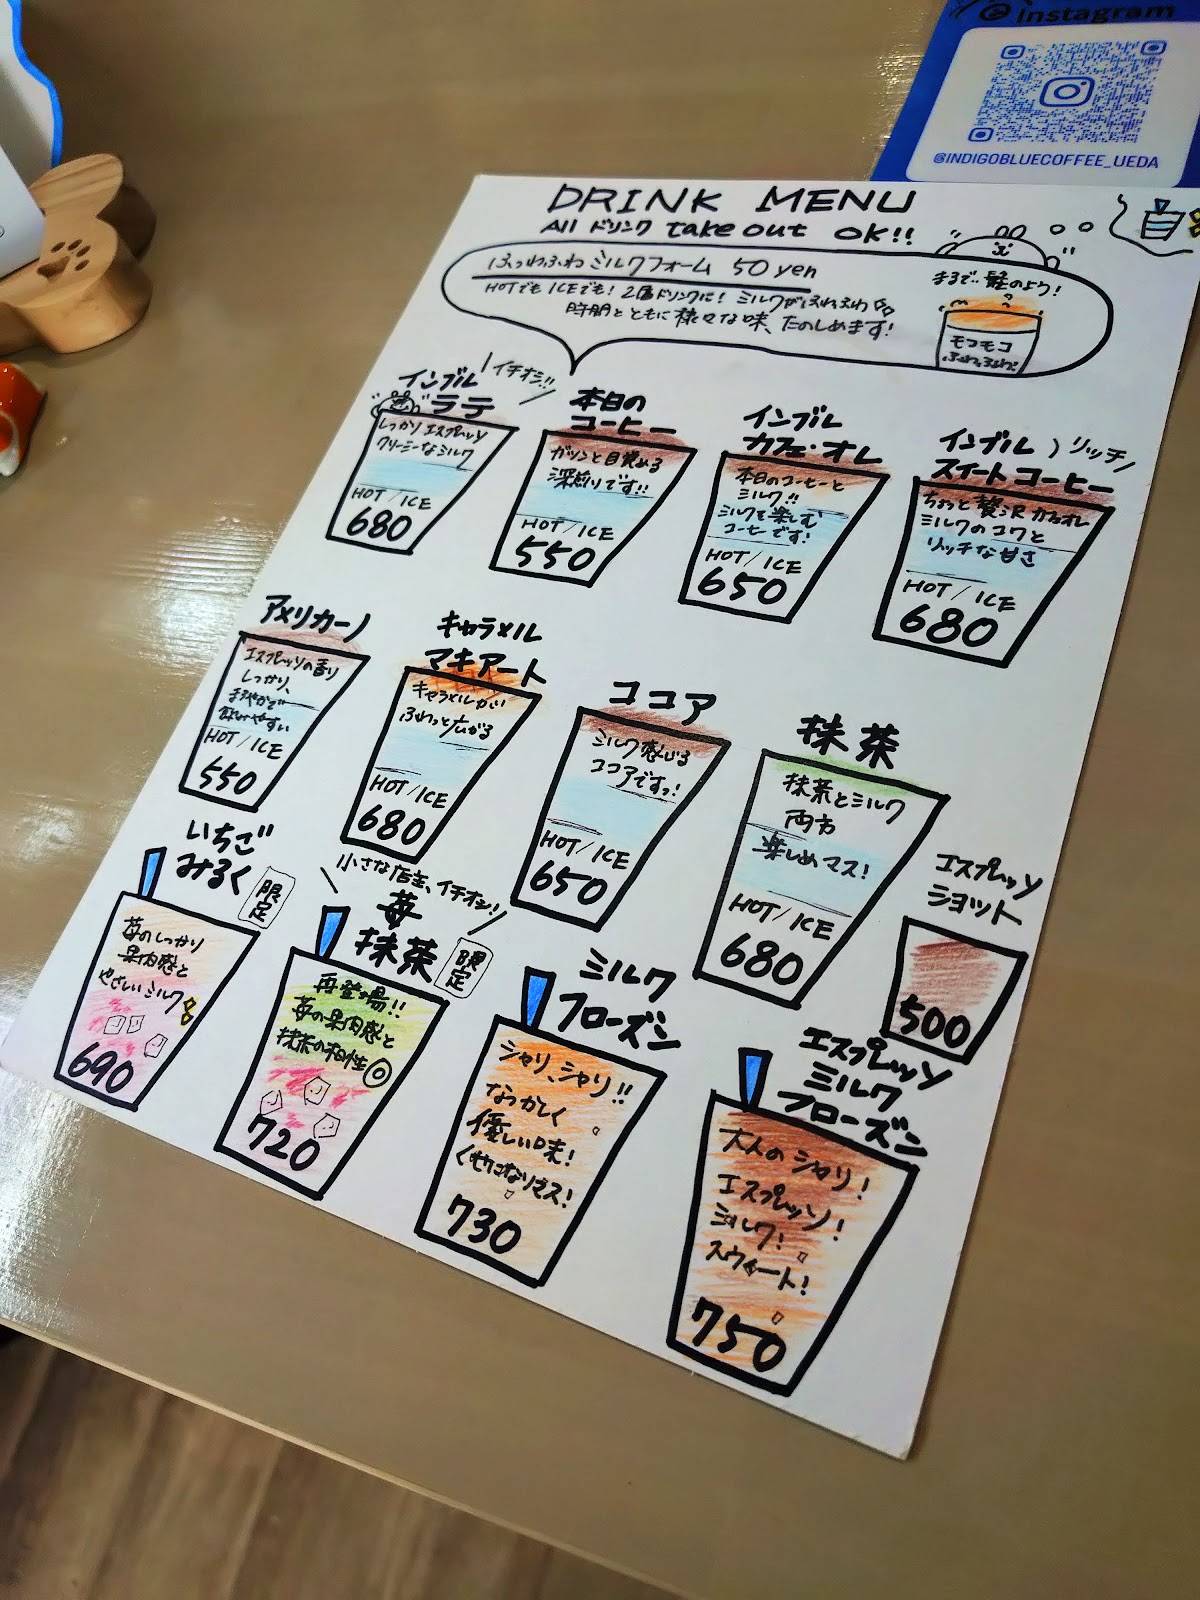 instagram
@INDIGOBLUECOFFEE_UEDA
DRINK MENU
All ドリンク take out OK!!
ふわふわ ミルクフォーム 50 yen
HOTでも ICEでも! 2層ドリンクに! ミルクがふわふわ
時間とともに様々な味、たのしめます!
まるで のよう!
モコモコ
ふわっふわ!
インブル
ラテ
イチオシ!!
しっかり エスプレッソ
クリーミーなミルク
HOT/ICE
680
本日の
コーヒー
ガツンと目覚める
深煎りです!!
HOT/ICE
550
インブル
カフェ・オレ
本日のコーヒーと
ミルク!!
ミルクを楽しむ
コーヒーです!
HOT/ICE
650
インブル
スイートコーヒー
リッチ
ちょっと贅沢カフェオレ
ミルクのコクと
リッチな甘さ
HOT/ICE
680
アメリカーノ
エスプレッソの香り
しっかり、
まろやかで
飲みやすい
HOT/ICE
550
キャラメル
マキアート
キャラメルが
ふわっと広がる
HOT/ICE
680
ココア
ミルク感じる
ココアですっ!
HOT/ICE
650
抹茶
抹茶とミルク
両方
楽しめマス!
HOT/ICE
680
エスプレッソ
ショット
500
いちご
みるく
限定
苺のしっかり
果肉感と
やさしいミルク
690
小さな店主、イチオシ!
苺
抹茶
限定
再登場!!
苺の果肉感と
抹茶の相性◎
720
ミルク
フローズン
シャリ、シャリ!!
なつかしく
優しい味!
くせになりマス!
730
エスプレッソ
ミルク
フローズン
大人のシャリ!
エスプレッソ!
ミルク!
スウィート!
750